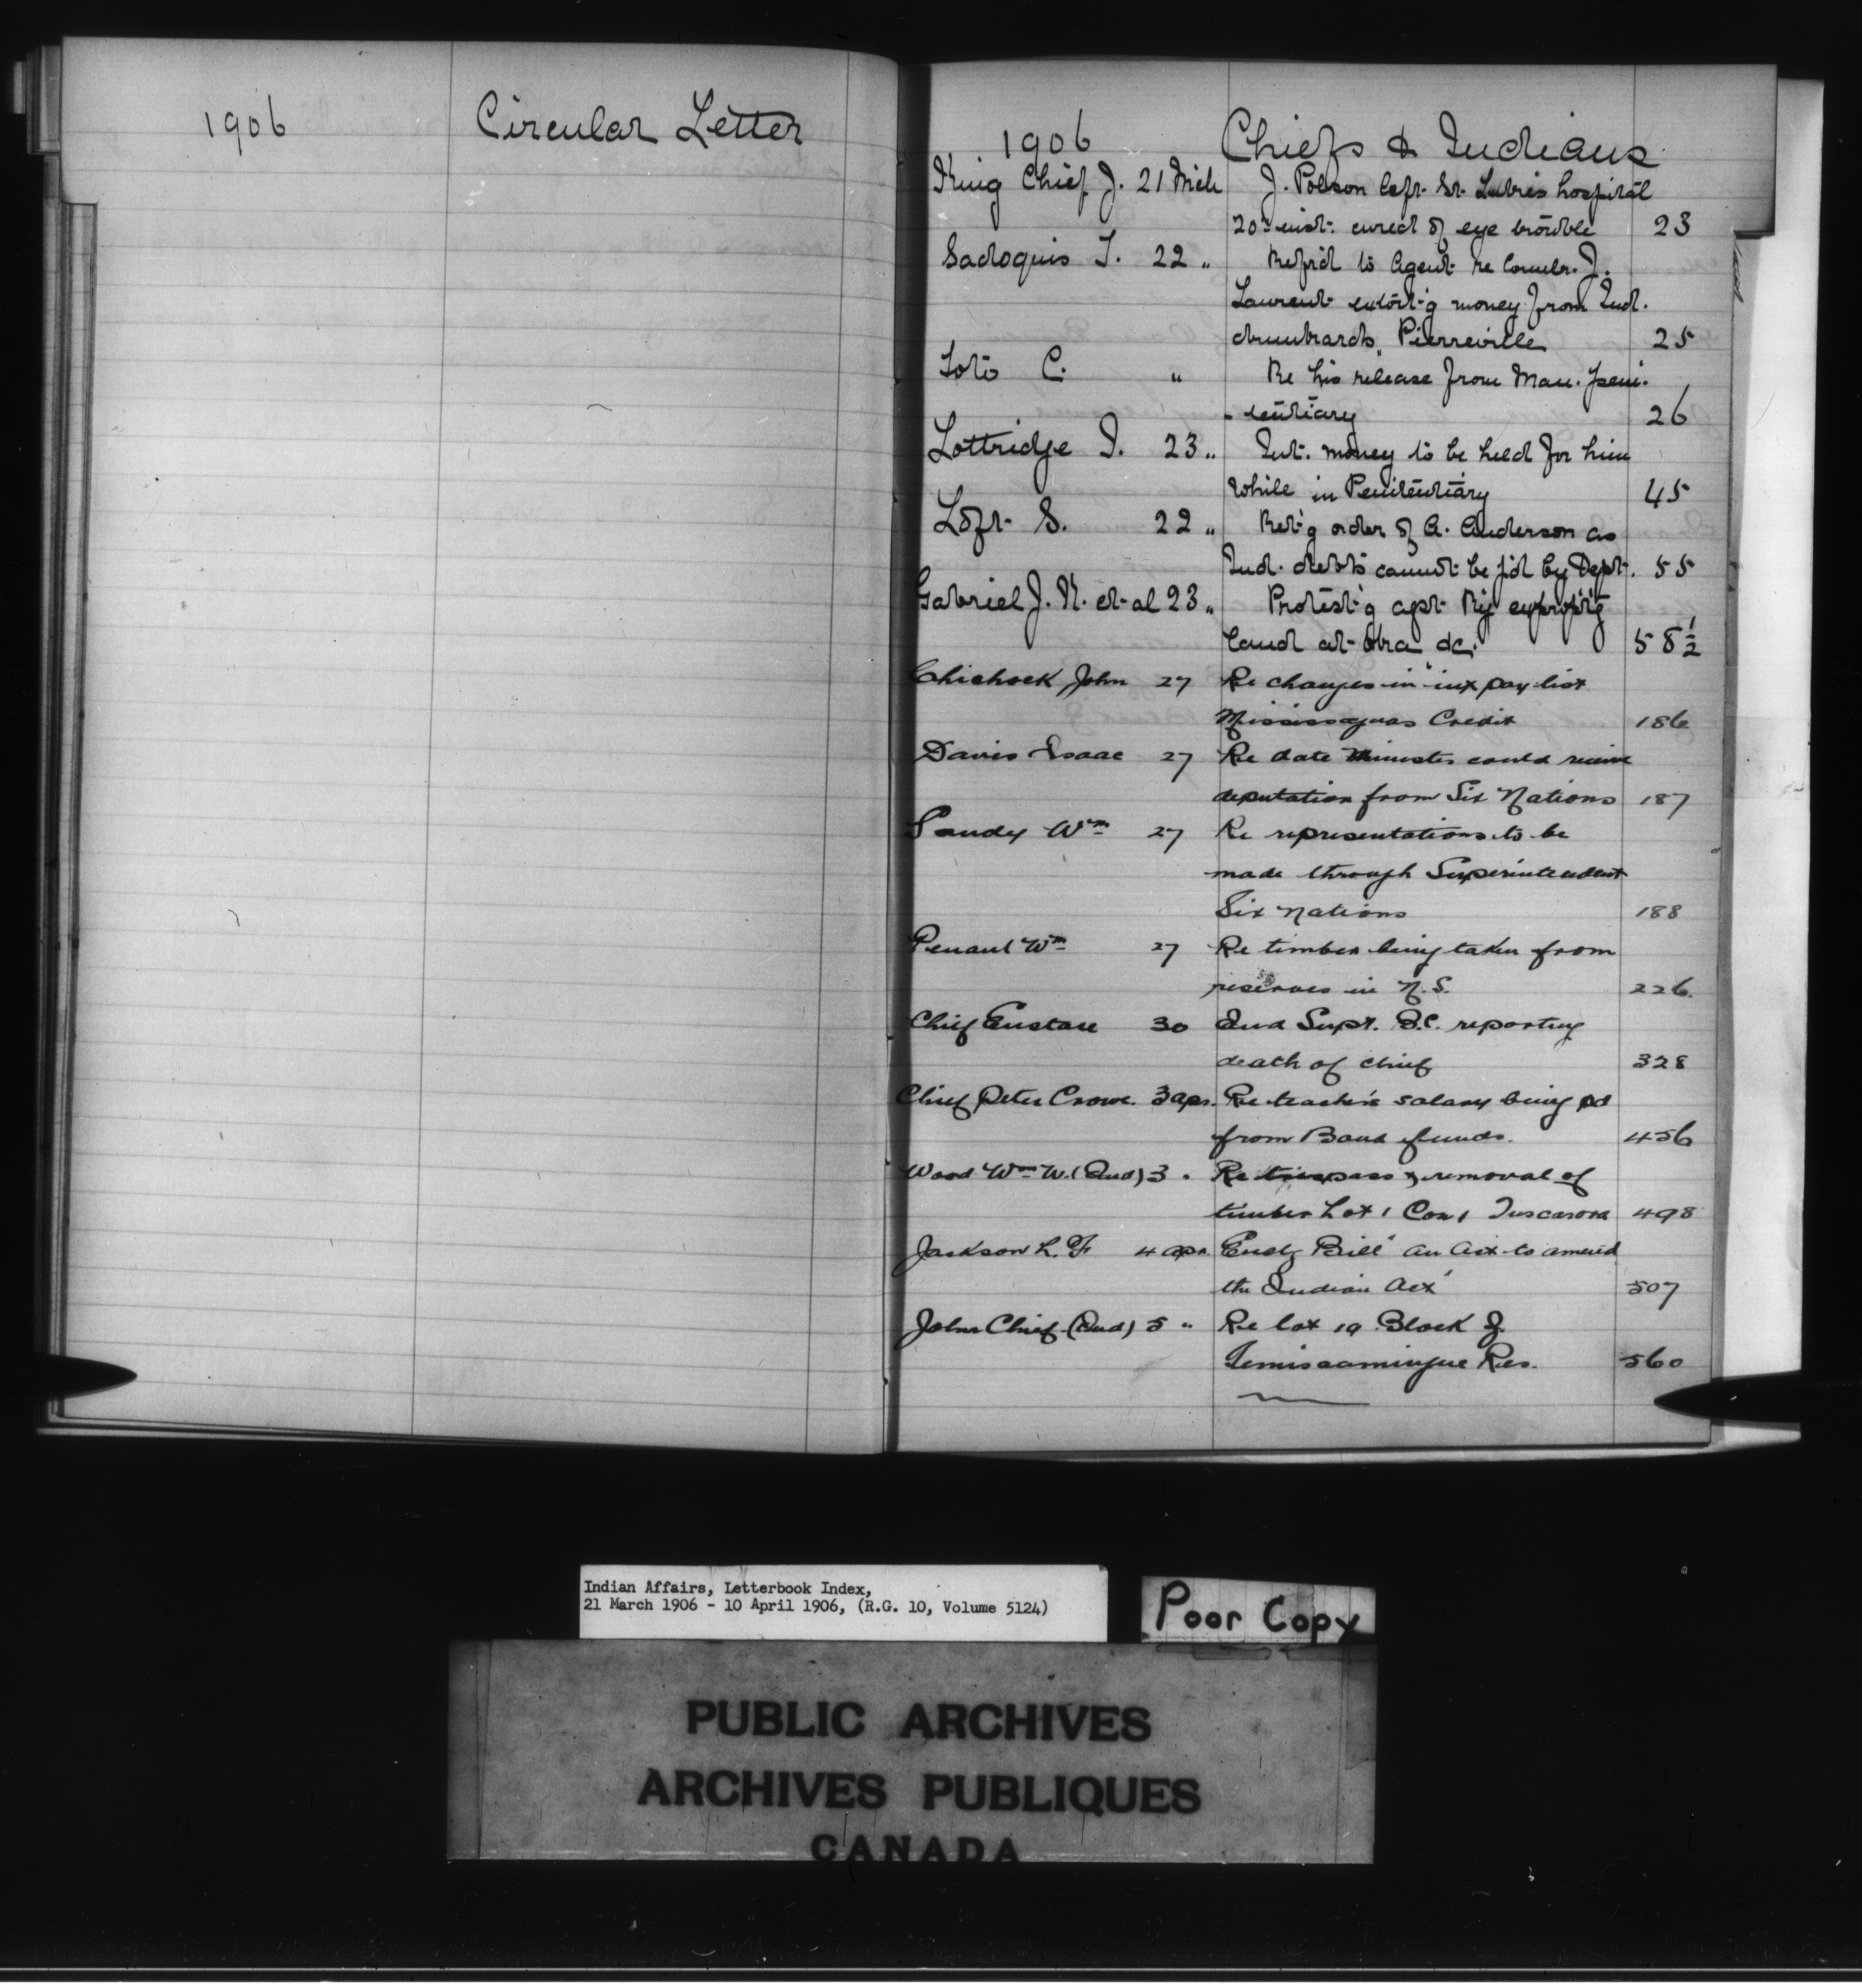 1906 Circular Letter
1906 Chiefs & Indians
King Chief J. 21 Mch J. Polson left St. Luke's hospital
20th inst. cured of eye trouble 23
Sadoquis T. 22 " Ref'd to Agent re Comlr. J.
Laurent extort'g money from Ind.
drunkards, Pierreville 25
Loto C. " Re his release from Man. peni-
-tentiary 26
Lottridge I. 23 " Int. money to be held for him
while in Penitentiary 45
Loft S. 22 " Ret'g order of A. Anderson as
Ind. debts cannot be p'd by Dept. 55
Gabriel J. N. et al 23 " Protest'g agst Ry exprop'g
land at Oka &c. 58½
Chichock John 27 Re changes in int pay list
Mississaguas Credit 186
Davis Isaac 27 Re date Minister could receive
deputation from Six Nations 187
Sandy Wm 27 Re representations to be
made through Superintendent
Six Nations 188
Penaul Wm 27 Re timber being taken from
reserves in N.S. 226.
Chief Eustace 30 Ind Supt. B.C. reporting
death of chief 328
Chief Peter Crowe. 3 Apr. Re teacher's salary being pd
from Band funds. 456
Wood Wm W. (Ind) 3 " Re trespass & removal of
timber Lot 1 Con 1 Tuscarora 498
Jackson L. F. 4 Apr. Encl'g Bill "An Act to amend
the Indian Act" 507
John Chief (Ind) 5 " Re lot 19 Block J.
Temiscamingue Res. 560
Indian Affairs, Letterbook Index,
21 March 1906 - 10 April 1906, (R.G. 10, Volume 5124)
Poor Copy
PUBLIC ARCHIVES
ARCHIVES PUBLIQUES
CANADA